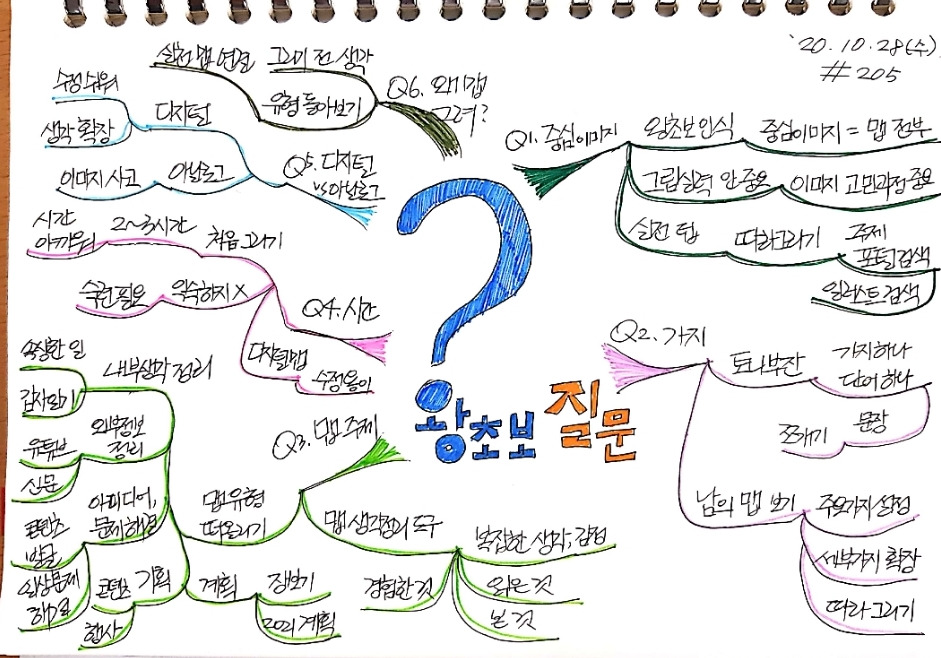 '20.10.28(수)
#205
왕초보 질문
Q1. 중심이미지
왕초보 인식
중심이미지 = 맵 전부
그림실력 안중요
이미지 고민과정 중요
실전 팁
따라그리기
주제
포털검색
일러스트 검색
Q2. 가지
토니부잔
가지 하나
단어 하나
문장
쪼개기
남의 맵 보기
주요가지 설정
세부가지 확장
따라 그리기
Q3. 맵 주제
맵 생각정리 도구
복잡한 생각, 감정
읽은 것
본 것
경험한 것
맵 유형
떠올리기
내부생각 정리
속상한 일
감사일기
외부정보
정리
유튜브
신문
아이디어,
문제해결
콘텐츠
발굴
일상문제
해결
기획
콘텐츠
행사
계획
장보기
2021 계획
Q4. 시간
처음 그리기
2~3시간
시간
아까워
익숙하지 X
숙련 필요
디지털맵
수정용이
Q5. 디지털
vs 아날로그
디지털
수정 쉬워
생각 확장
아날로그
이미지 사고
Q6. 왜 맵
그려?
유형 돌아보기
그리기 전 생각
실전 맵 연결